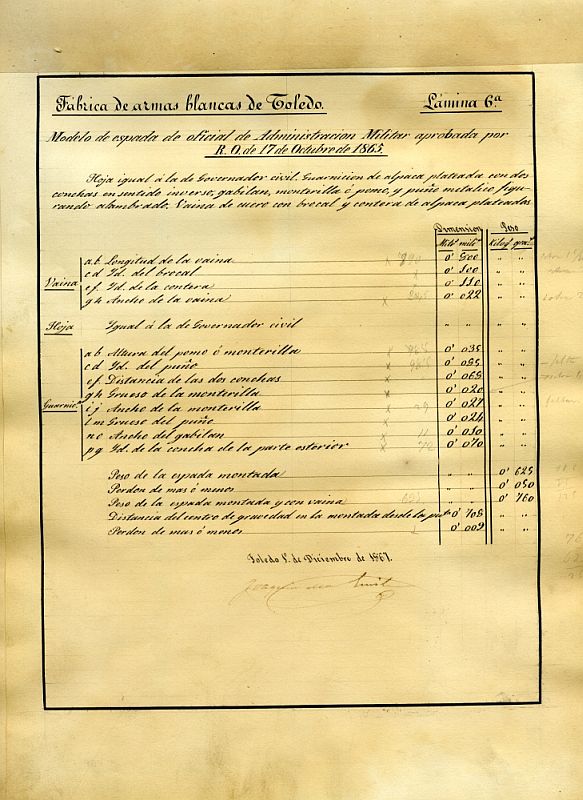 Fábrica de armas blancas de Toledo. Lámina 6ª
Modelo de espada de oficial de Administracion Militar aprobada por
R. O. de 17 de Octubre de 1865
Hoja igual á la de Governador civil, Guarnicion de alpaca plateada con dos
conchas en sentido inverso, gabilan, monterilla ó pomo, y puño metalico figu-
rando alambrado. Vaina de cuero con brocal y contera de alpaca plateados
Dimension Peso
Met.º mils. Kilogs gras.
Vaina
a b Longitud de la vaina 0' 800 " "
c d Id. del brocal 0' 100 " "
e f Id. de la contera 0' 110 " "
g h Ancho de la vaina 0' 022 " "
Hoja Igual á la de Governador civil " " " "
Guarnic.n
a b Altura del pomo ó monterilla 0' 035 " "
c d Id. del puño 0' 085 " "
e f Distancia de las dos conchas 0' 065 " "
g h Grueso de la monterilla 0' 020 " "
i j Ancho de la monterilla 0' 027 " "
l m Grueso del puño 0' 024 " "
n o Ancho del gabilan 0' 010 " "
p q Id. de la concha de la parte esterior 0' 070 " "
Peso de la espada montada " " 0' 625
Perdon de mas ó menos " " 0' 050
Peso de la espada montada y con vaina " " 0' 760
Distancia del centro de gravedad en la montada desde la pta 0' 708 " "
Perdon de mas ó menos 0' 009 " "
Toledo 1º de Diciembre de 1867.